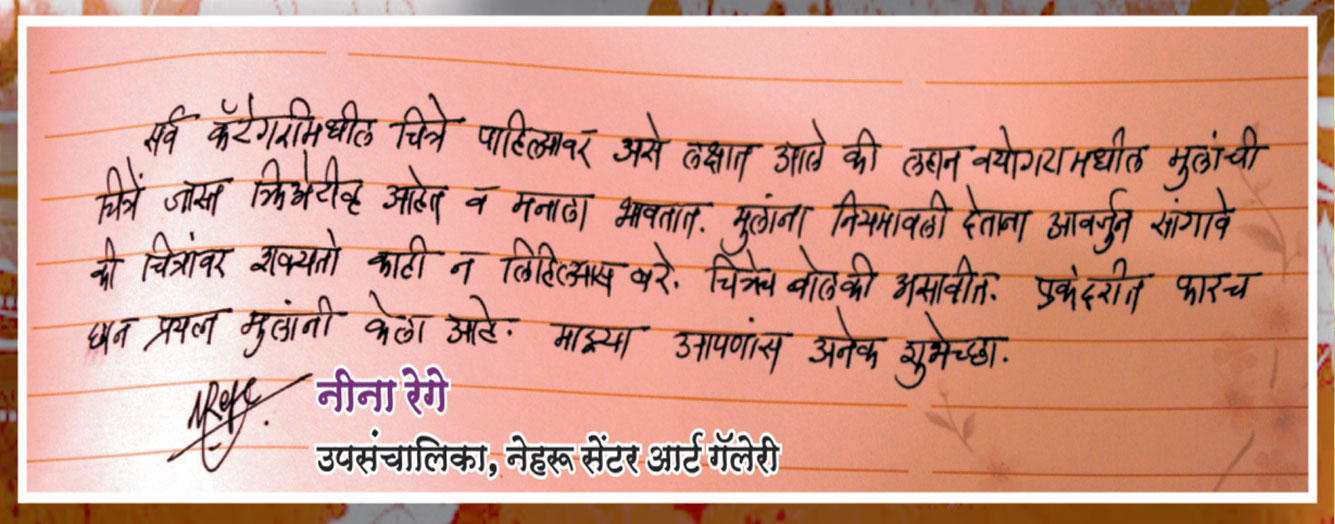 सर्व कॅटेगरीमधील चित्रे पाहिल्यावर असे लक्षात आले की लहान वयोगटामधील मुलांची
चित्रें जास्त क्रिएटीव्ह आहेत व मनाला भावतात. मुलांना नियमावली देताना आवर्जुन सांगावे
की चित्रांवर शक्यतो काही न लिहिल्यास बरे. चित्रेच बोलकी असावीत. एकंदरीत फारच
छान प्रयत्न मुलांनी केला आहे. माझ्या आपणांस अनेक शुभेच्छा.
नीना रेगे
उपसंचालिका, नेहरू सेंटर आर्ट गॅलेरी